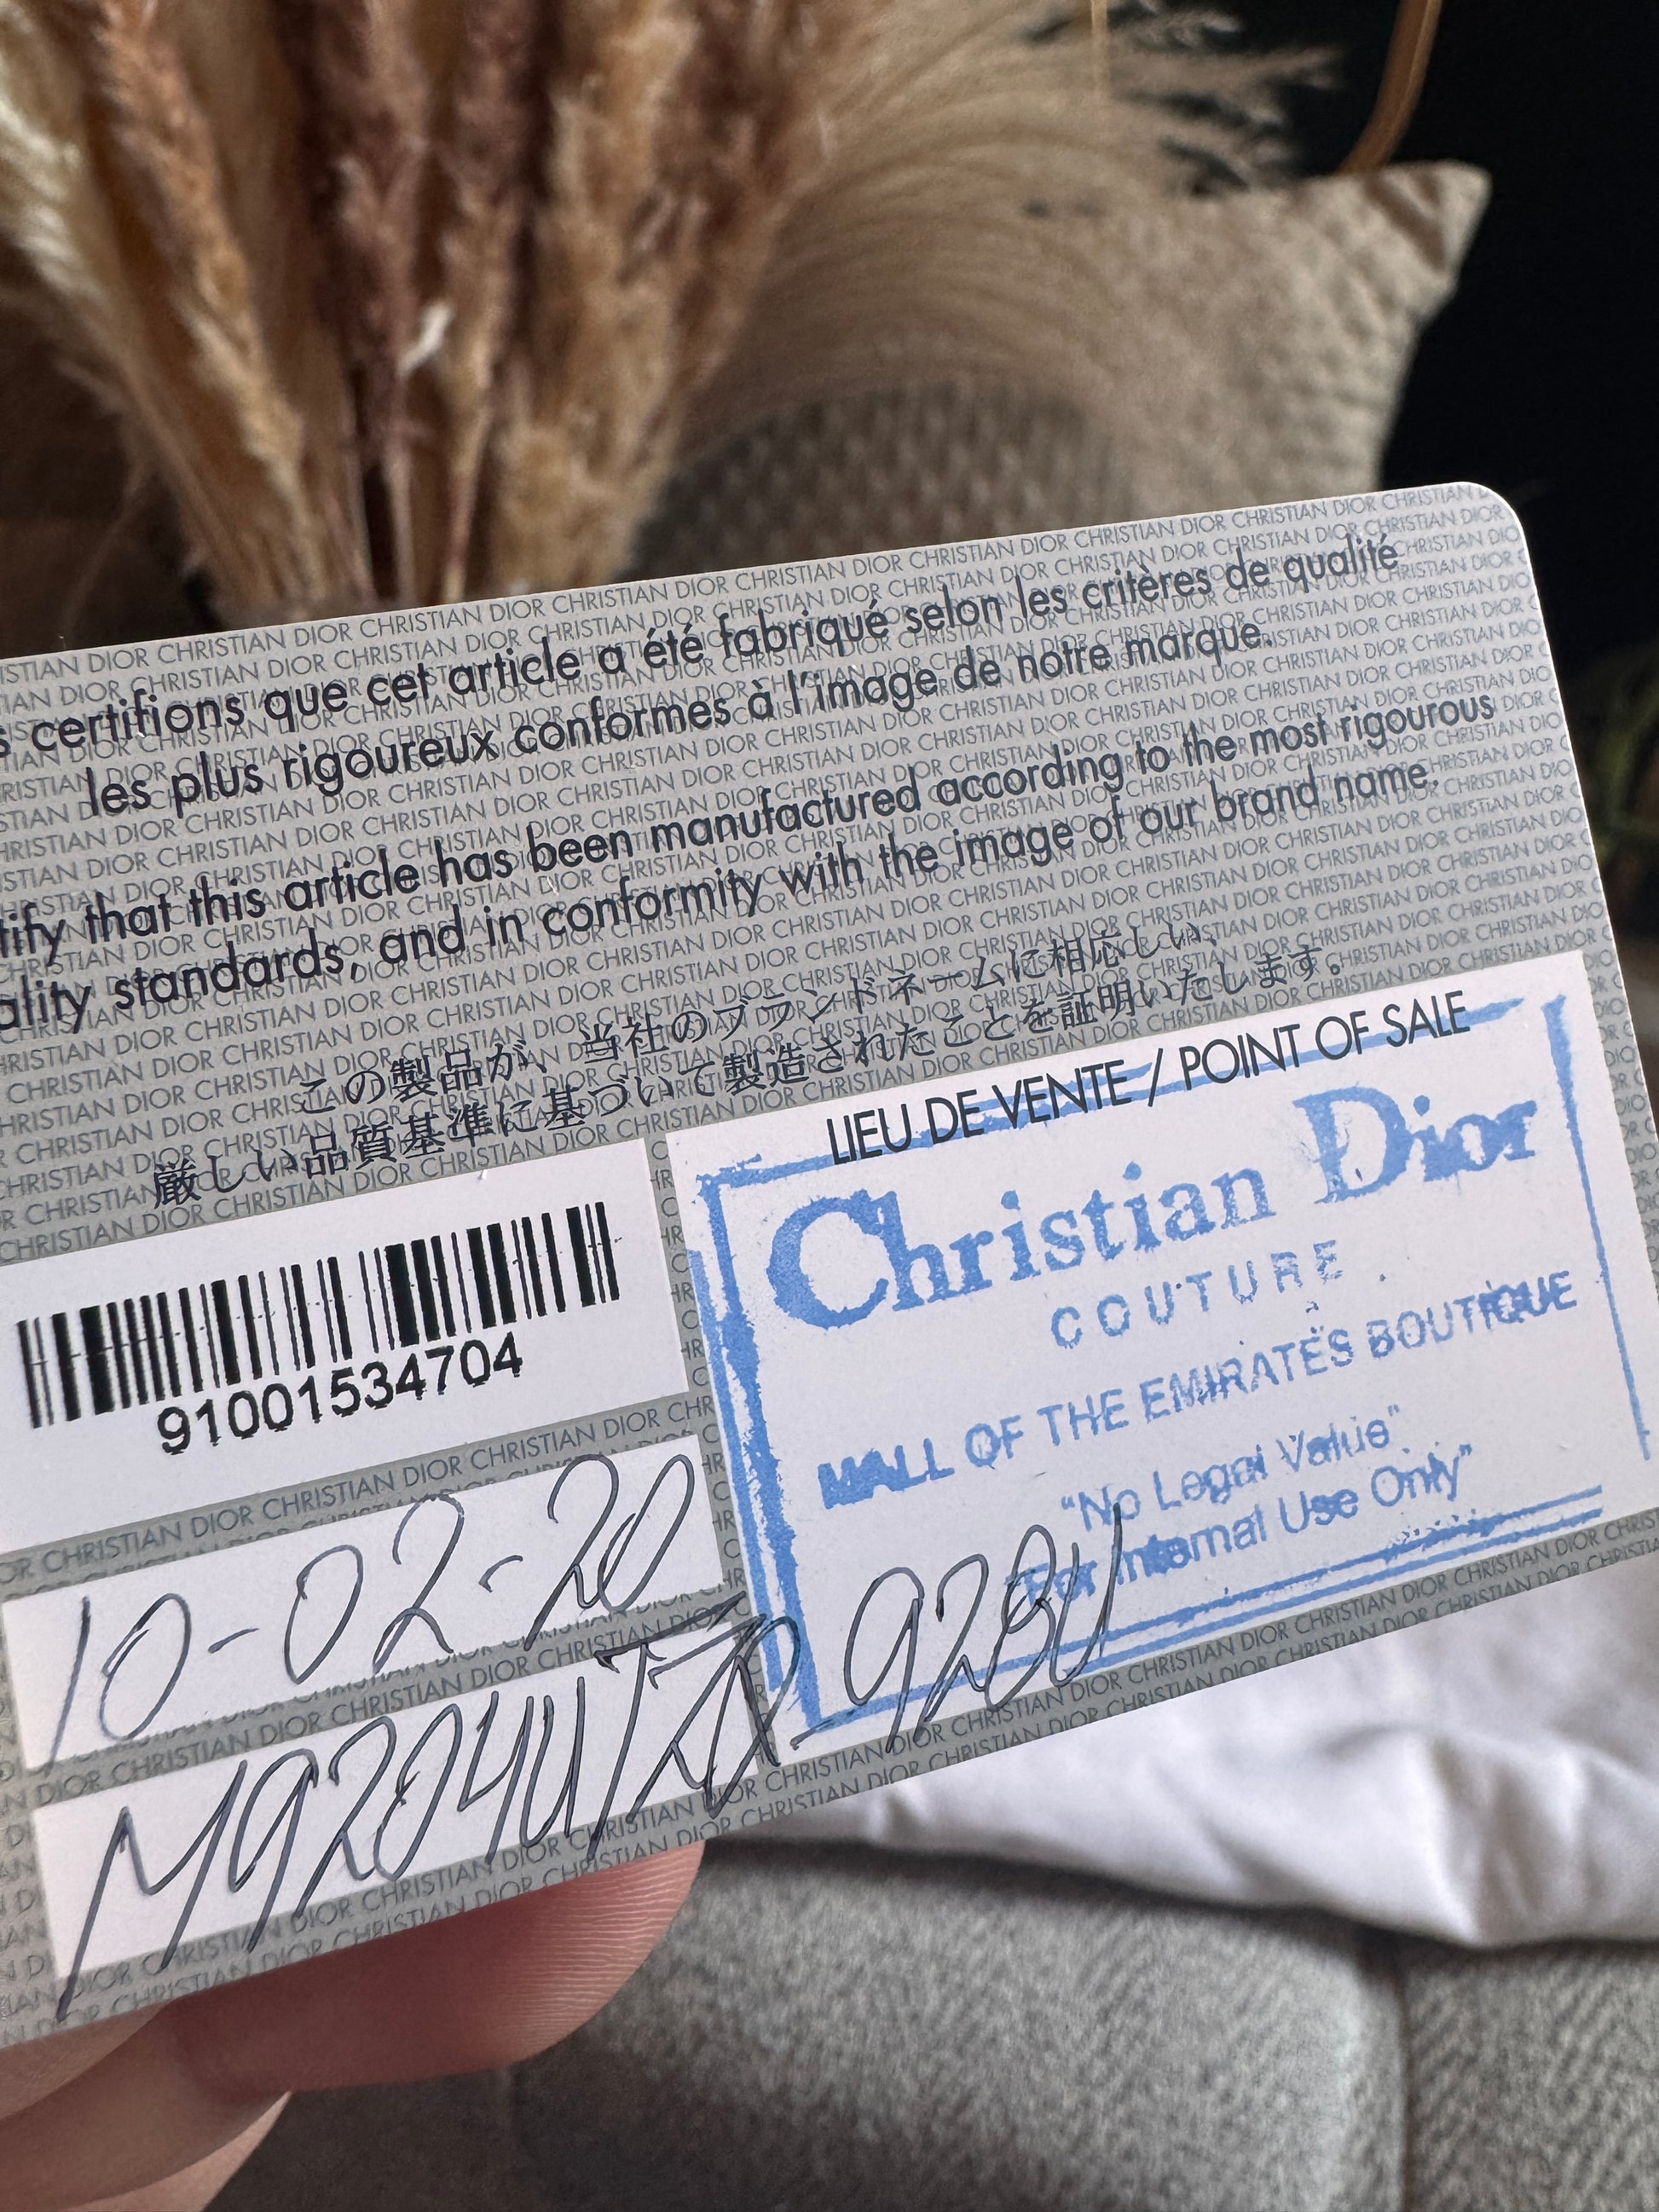 certifions que cet article a été fabriqué selon les critères de qualité
les plus rigoureux conformes à l'image de notre marque.
tify that this article has been manufactured according to the most rigourous
ality standards, and in conformity with the image of our brand name.
この製品が、当社のブランドネームに相応しい、
厳しい品質基準に基づいて製造されたことを証明いたします。
LIEU DE VENTE / POINT OF SALE
Christian Dior
COUTURE
MALL OF THE EMIRATES BOUTIQUE
"No Legal Value"
For Internal Use Only"
91001534704
10-02-20